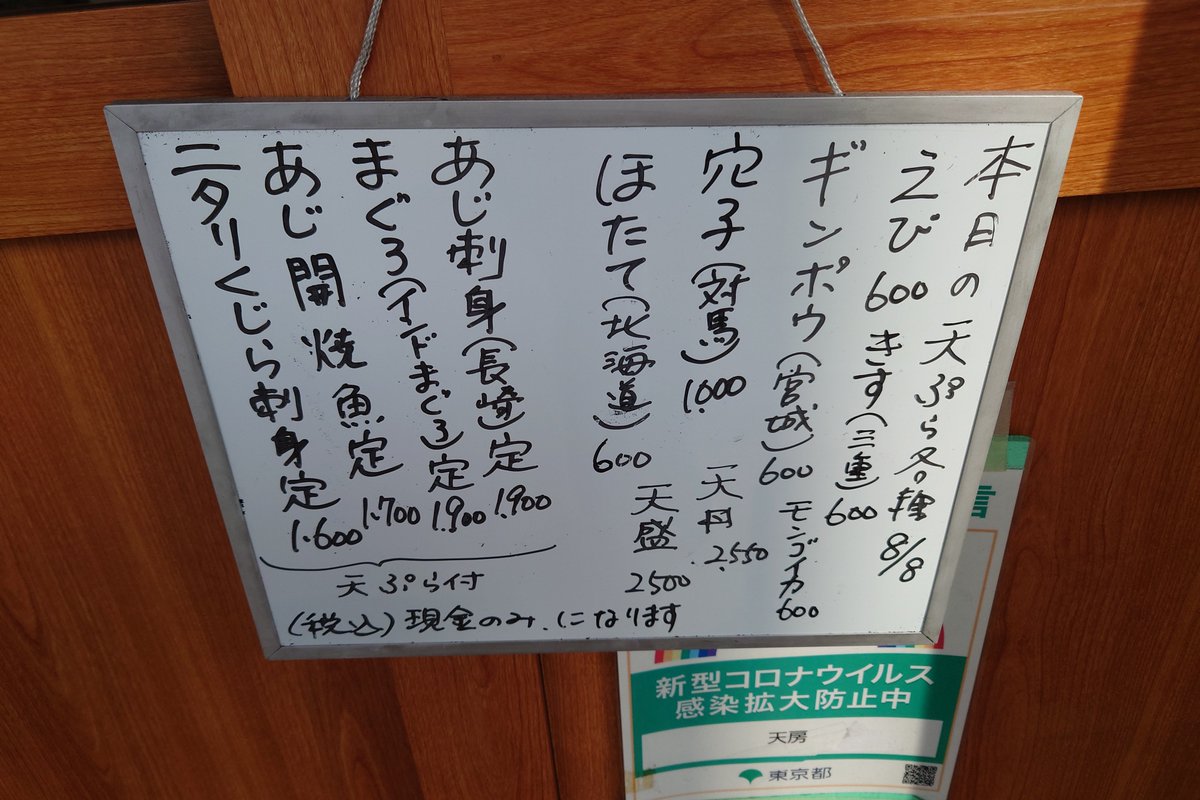 本日の天ぷら各種 8/8
えび 600 きす(三重) 600
ギンポウ(宮城) 600 モンゴイカ 600
穴子(対馬) 1.000 天丼 2.550
ほたて(北海道) 600 天盛 2500
あじ刺身(長崎)定 1.900
まぐろ(インドまぐろ)定 1.900
あじ開焼魚定 1.700
ニタリくじら刺身定 1.600
天ぷら付
(税込)現金のみ、になります
新型コロナウイルス
感染拡大防止中
天房
東京都